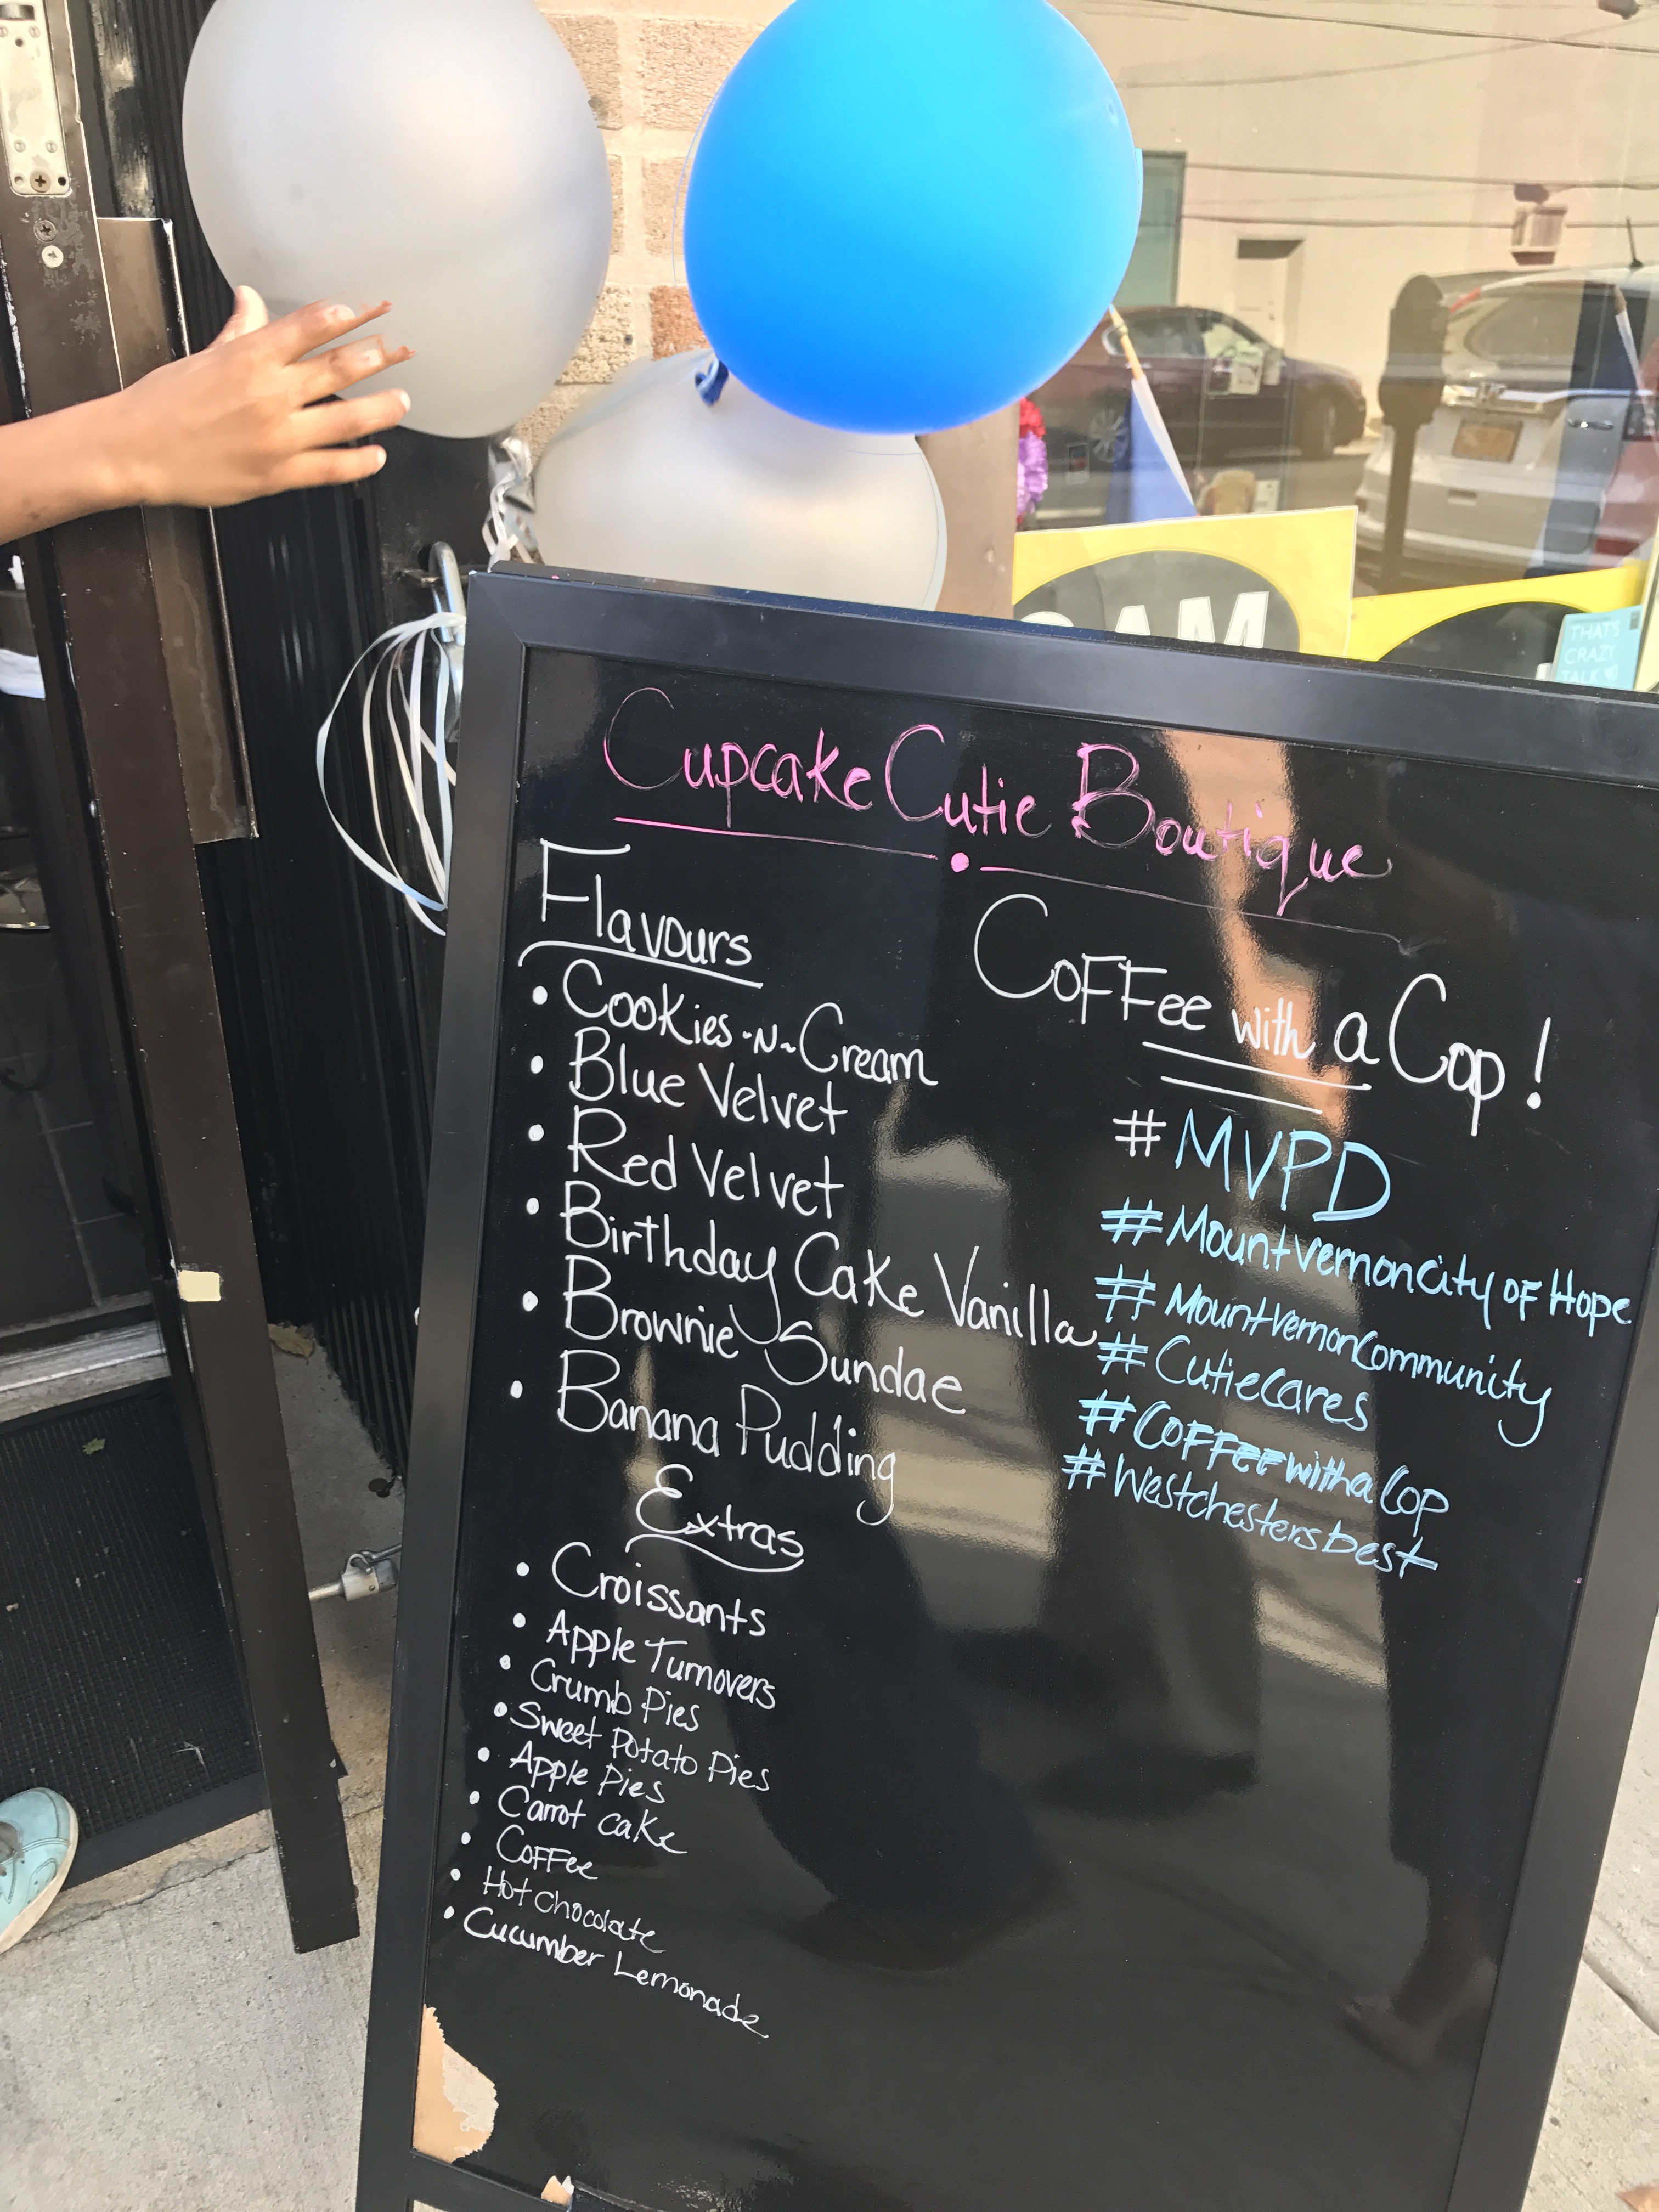 AM
THAT'S
CRAZY
TALK
Cupcake Cutie Boutique
Flavours
• Cookies-N-Cream
• Blue Velvet
• Red Velvet
• Birthday Cake Vanilla
• Brownie Sundae
• Banana Pudding
Extras
• Croissants
• Apple Turnovers
• Crumb Pies
• Sweet Potato Pies
• Apple Pies
• Carrot Cake
• Coffee
• Hot Chocolate
• Cucumber Lemonade
Coffee with a Cop!
#MVPD
#MountvernonCityofHope
#MountvernonCommunity
#Cutiecares
#CoffeewithaCop
#Westchestersbest